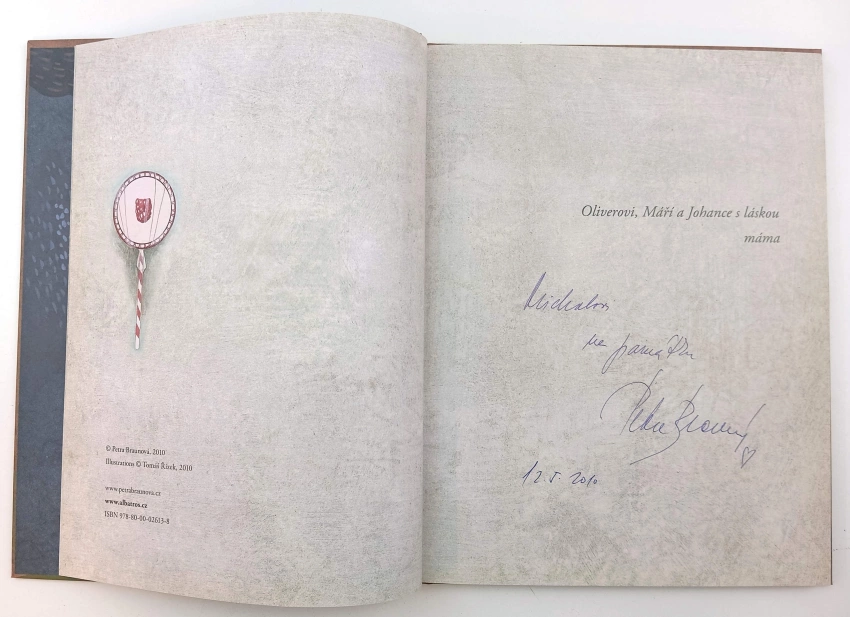 © Petra Braunová, 2010
Illustrations © Tomáš Řízek, 2010
www.petrabraunova.cz
www.albatros.cz
ISBN 978-80-00-02613-8
Oliverovi, Máří a Johance s láskou
máma
Michalovi
na památku
Petra Braunová
12. 5. 2010